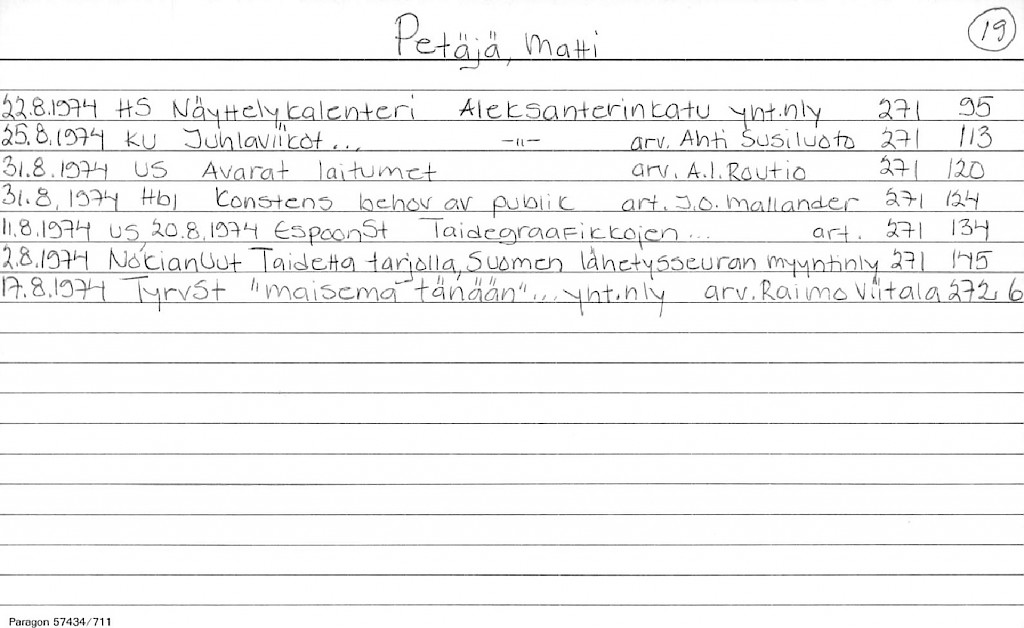 19
Petäjä, Matti
22.8.1974 HS Näyttelykalenteri Aleksanterinkatu yht.nly 271 95
25.8.1974 KU Juhlaviikot... -"- arv. Ahti Susiluoto 271 113
31.8.1974 US Avarat laitumet arv. A.I. Routio 271 120
31.8.1974 Hbl Konstens behov av publik art. J.O. Mallander 271 124
11.8.1974 US, 20.8.1974 EspoonSt Taidegraafikkojen... art. 271 134
2.8.1974 NokianUut Taidetta tarjolla, Suomen lähetysseuran myyntinly 271 145
17.8.1974 TyrvSt "maisema tänään"... yht.nly arv. Raimo Viitala 272 6
Paragon 57434/711